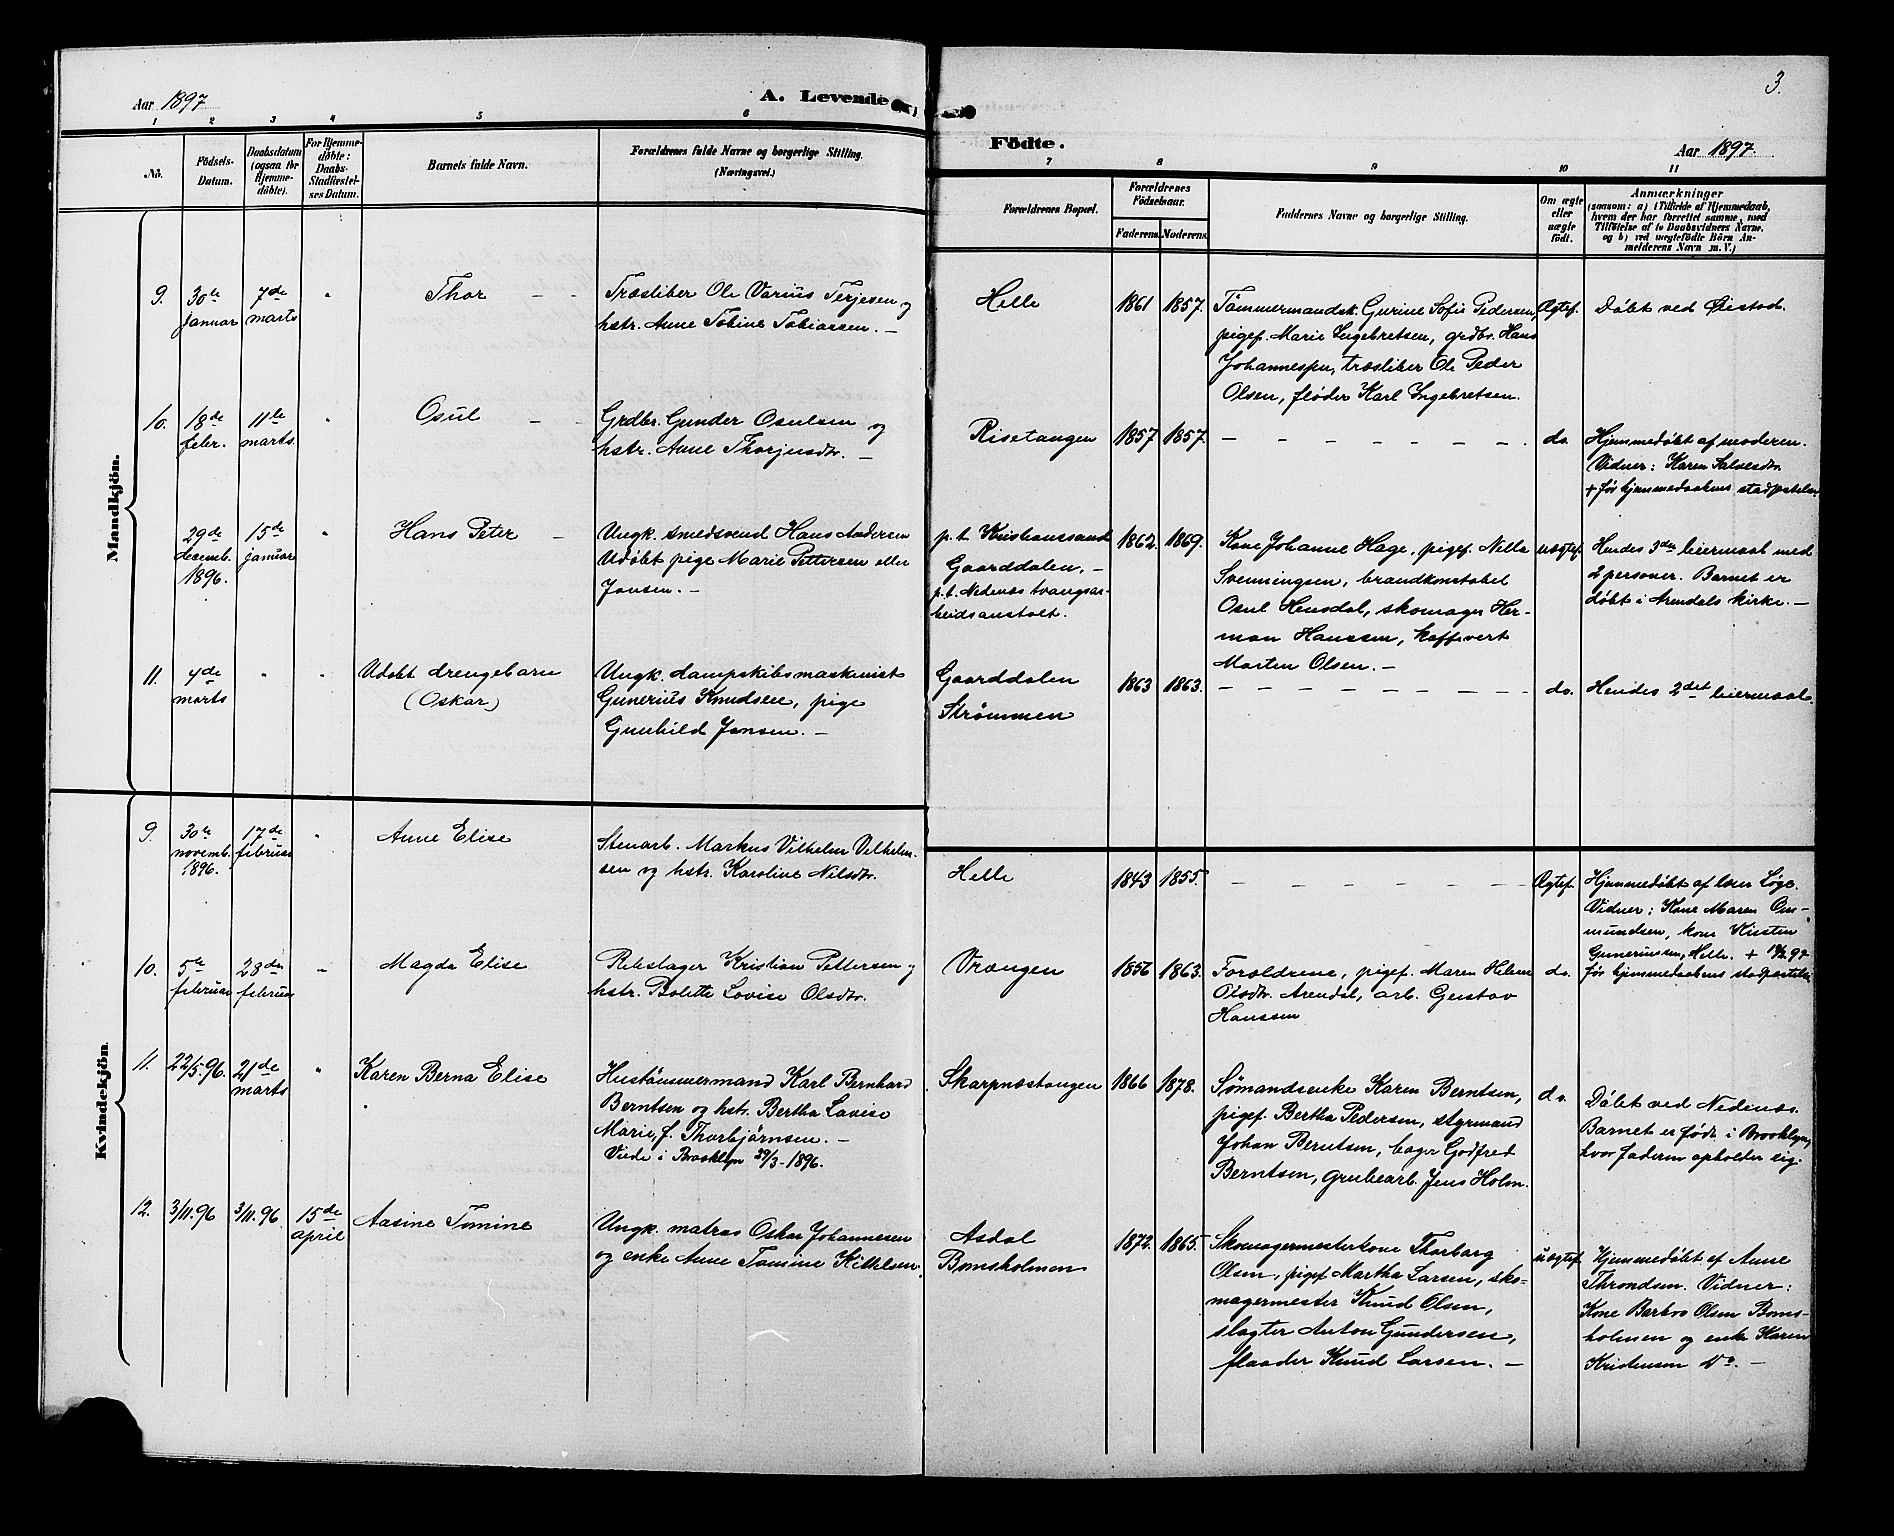 3.
Aar 1897
A. Levende
Födte.
Aar 1897.
1 2 3 4 5 6 7 8 9 10 11
No.
Födsels-
Datum.
Daabsdatum
(ogsaa for
Hjemme-
döbte).
For Hjemme-
döbte:
Daabs-
Stadfæstel-
ses Datum.
Barnets fulde Navn.
Forældrenes fulde Navne og borgerlige Stilling.
(Næringsvei.)
Forældrenes Bopæl.
Forældrenes
Födselsaar.
Faderens. Moderens.
Faddernes Navne og borgerlige Stilling.
Om ægte
eller
uægte
födt.
Anmærkninger
(saasom: a) i Tilfælde af Hjemmedaab,
hvem der har forrettet samme, med
Tilföielse af to Daabsvidners Navne.
og b) ved uægtefödte Börn An-
melderens Navn m. V.)
Mandkjön.
9.
30te
januar
7de
marts
"
Thor
Træsliber Ole Varius Terjesen og
hstr. Anne Tobine Tobiassen. —
Helle
1861
1857.
Tømmermandsk. Gurine Sofie Pedersen,
pigef. Marie Ingebretsen, grdbr. Hans
Johannessen, træsliber Ole Peder
Olsen, fløder Karl Ingebretsen.
Ægtef.
Døbt ved Øiestad.
10.
18de
febr.
11te
marts
"
Osul
Grdbr. Gunder Osulsen og
hstr. Anne Thorjusdtr. —
Risetangen
1857
1857.
do.
Hjemmedøbt af moderen.
Vidner: Karen Salvesdtr.
+ før hjemmedaabens
29de
decemb.
1896.
15de
januar
"
Hans Peter
Ungk. smedsvend Hans Andersen
Udøbt pige Marie Pettersen eller
Jansen. —
p.t. Kristianssand
Gaarddalen, —
p.t. Nedenæs tvangsar-
beidsanstalt.
1862.
1869.
Kone Johanne Hage, pigef. Nella
Svenningsen, brandkonstabel
Osul Heusdal, skomager Her-
man Hanssen, kaffevert
Morten Olsen. —
uægtef.
Hendes 3die leiermaal med
2 personer. Barnet er
døbt i Arendals kirke. —
11.
4de
marts
"
"
Udøbt drengebarn
(Oskar)
Ungk. dampskibsmaskinist
Gunerius Knudsen, pige
Gunhild Jansen. —
Gaarddalen
Strømmen
1863
1863.
do.
Hendes 2det leiermaal.
Kvindekjön
9.
30te
novemb.
1896.
17de
februar
"
Anne Elise
Stenarb. Markus Vilhelm Vilhelm-
sen og hstr. Karoline Nilsdtr.
Helle
1843
1855.
Ægtef.
Hjemmedøbt af Løge.
Vidner: Kone Maren Om-
mundsen, kone Kirsten
Gunerinssen, Helle. +
før hjemmedaabens
10.
5te
februar
28de
februar
"
Magda Elise
Rebslager Kristian Pettersen og
hstr. Bolette Lovise Olsdtr.
Vrængen
1856
1863.
Forældrene, pigef. Maren Helene
Olsdtr. Arendal, arb. Gustav
Hanssen
do.
11.
22/5.96.
21de
marts
"
Karen Berna Elise
Hustømmermand Karl Bernhard
Berntsen og hstr. Bertha Lovise
Marie, f. Thorbjørnsen. —
Viede i Brooklyn 29/3-1896.
Skarpnæstangen
1866
1878.
Sømandsenke Karen Berntsen,
pigef. Bertha Pedersen, styrmand
Johan Berntsen, bager Godfred
Berntsen, grubearb. Jens Holm.
do.
Døbt ved Nedenæs.
Barnet er født i Brooklyn,
hvor faderen opholder sig.
12.
3/11.96
3/11.96
15de
april
Aasine Tomine
Ungk. matros Oskar Johannesen
og enke Anne Tomine Kittelsen.
Asdal
Bomsholmen
1872.
1865.
Skomagermesterkone Thorborg
Olsen, pigef. Martha Larsen, sko-
magermester Knud Olsen,
slagter Anton Gundersen,
flaader Knud Larsen. —
uægtef.
Hjemmedøbt af Anne
Throndsen. Vidner:
Kone Barbro Olsen Boms-
holmen og enke Karen
Kristensen Do. —